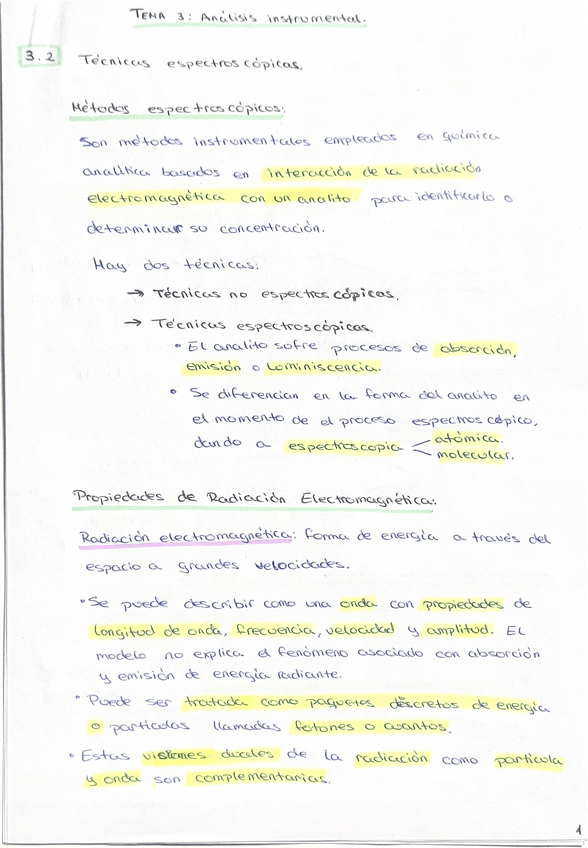 TEMA 3: Análisis instrumental.
3.2 Técnicas espectroscópicas.
Métodos espectroscópicos:
Son métodos instrumentales empleados en química
analítica basados en interacción de la radiación
electromagnética con un analito para identificarlo o
determinar su concentración.
Hay dos técnicas:
→ Técnicas no espectroscópicas.
→ Técnicas espectroscópicas.
• El analito sufre procesos de absorción,
emisión o luminiscencia.
• Se diferencian en la forma del analito en
el momento de el proceso espectroscópico,
dando a espectroscopia atómica.
molecular.
Propiedades de Radiación Electromagnética:
Radiación electromagnética: forma de energía a través del
espacio a grandes velocidades.
• Se puede describir como una onda con propiedades de
longitud de onda, frecuencia, velocidad y amplitud. El
modelo no explica el fenómeno asociado con absorción
y emisión de energía radiante.
• Puede ser tratada como paquetes discretos de energía
o partículas llamadas fotones o cuantos.
• Estas visiones duales de la radiación como partícula
y onda son complementarias.
1